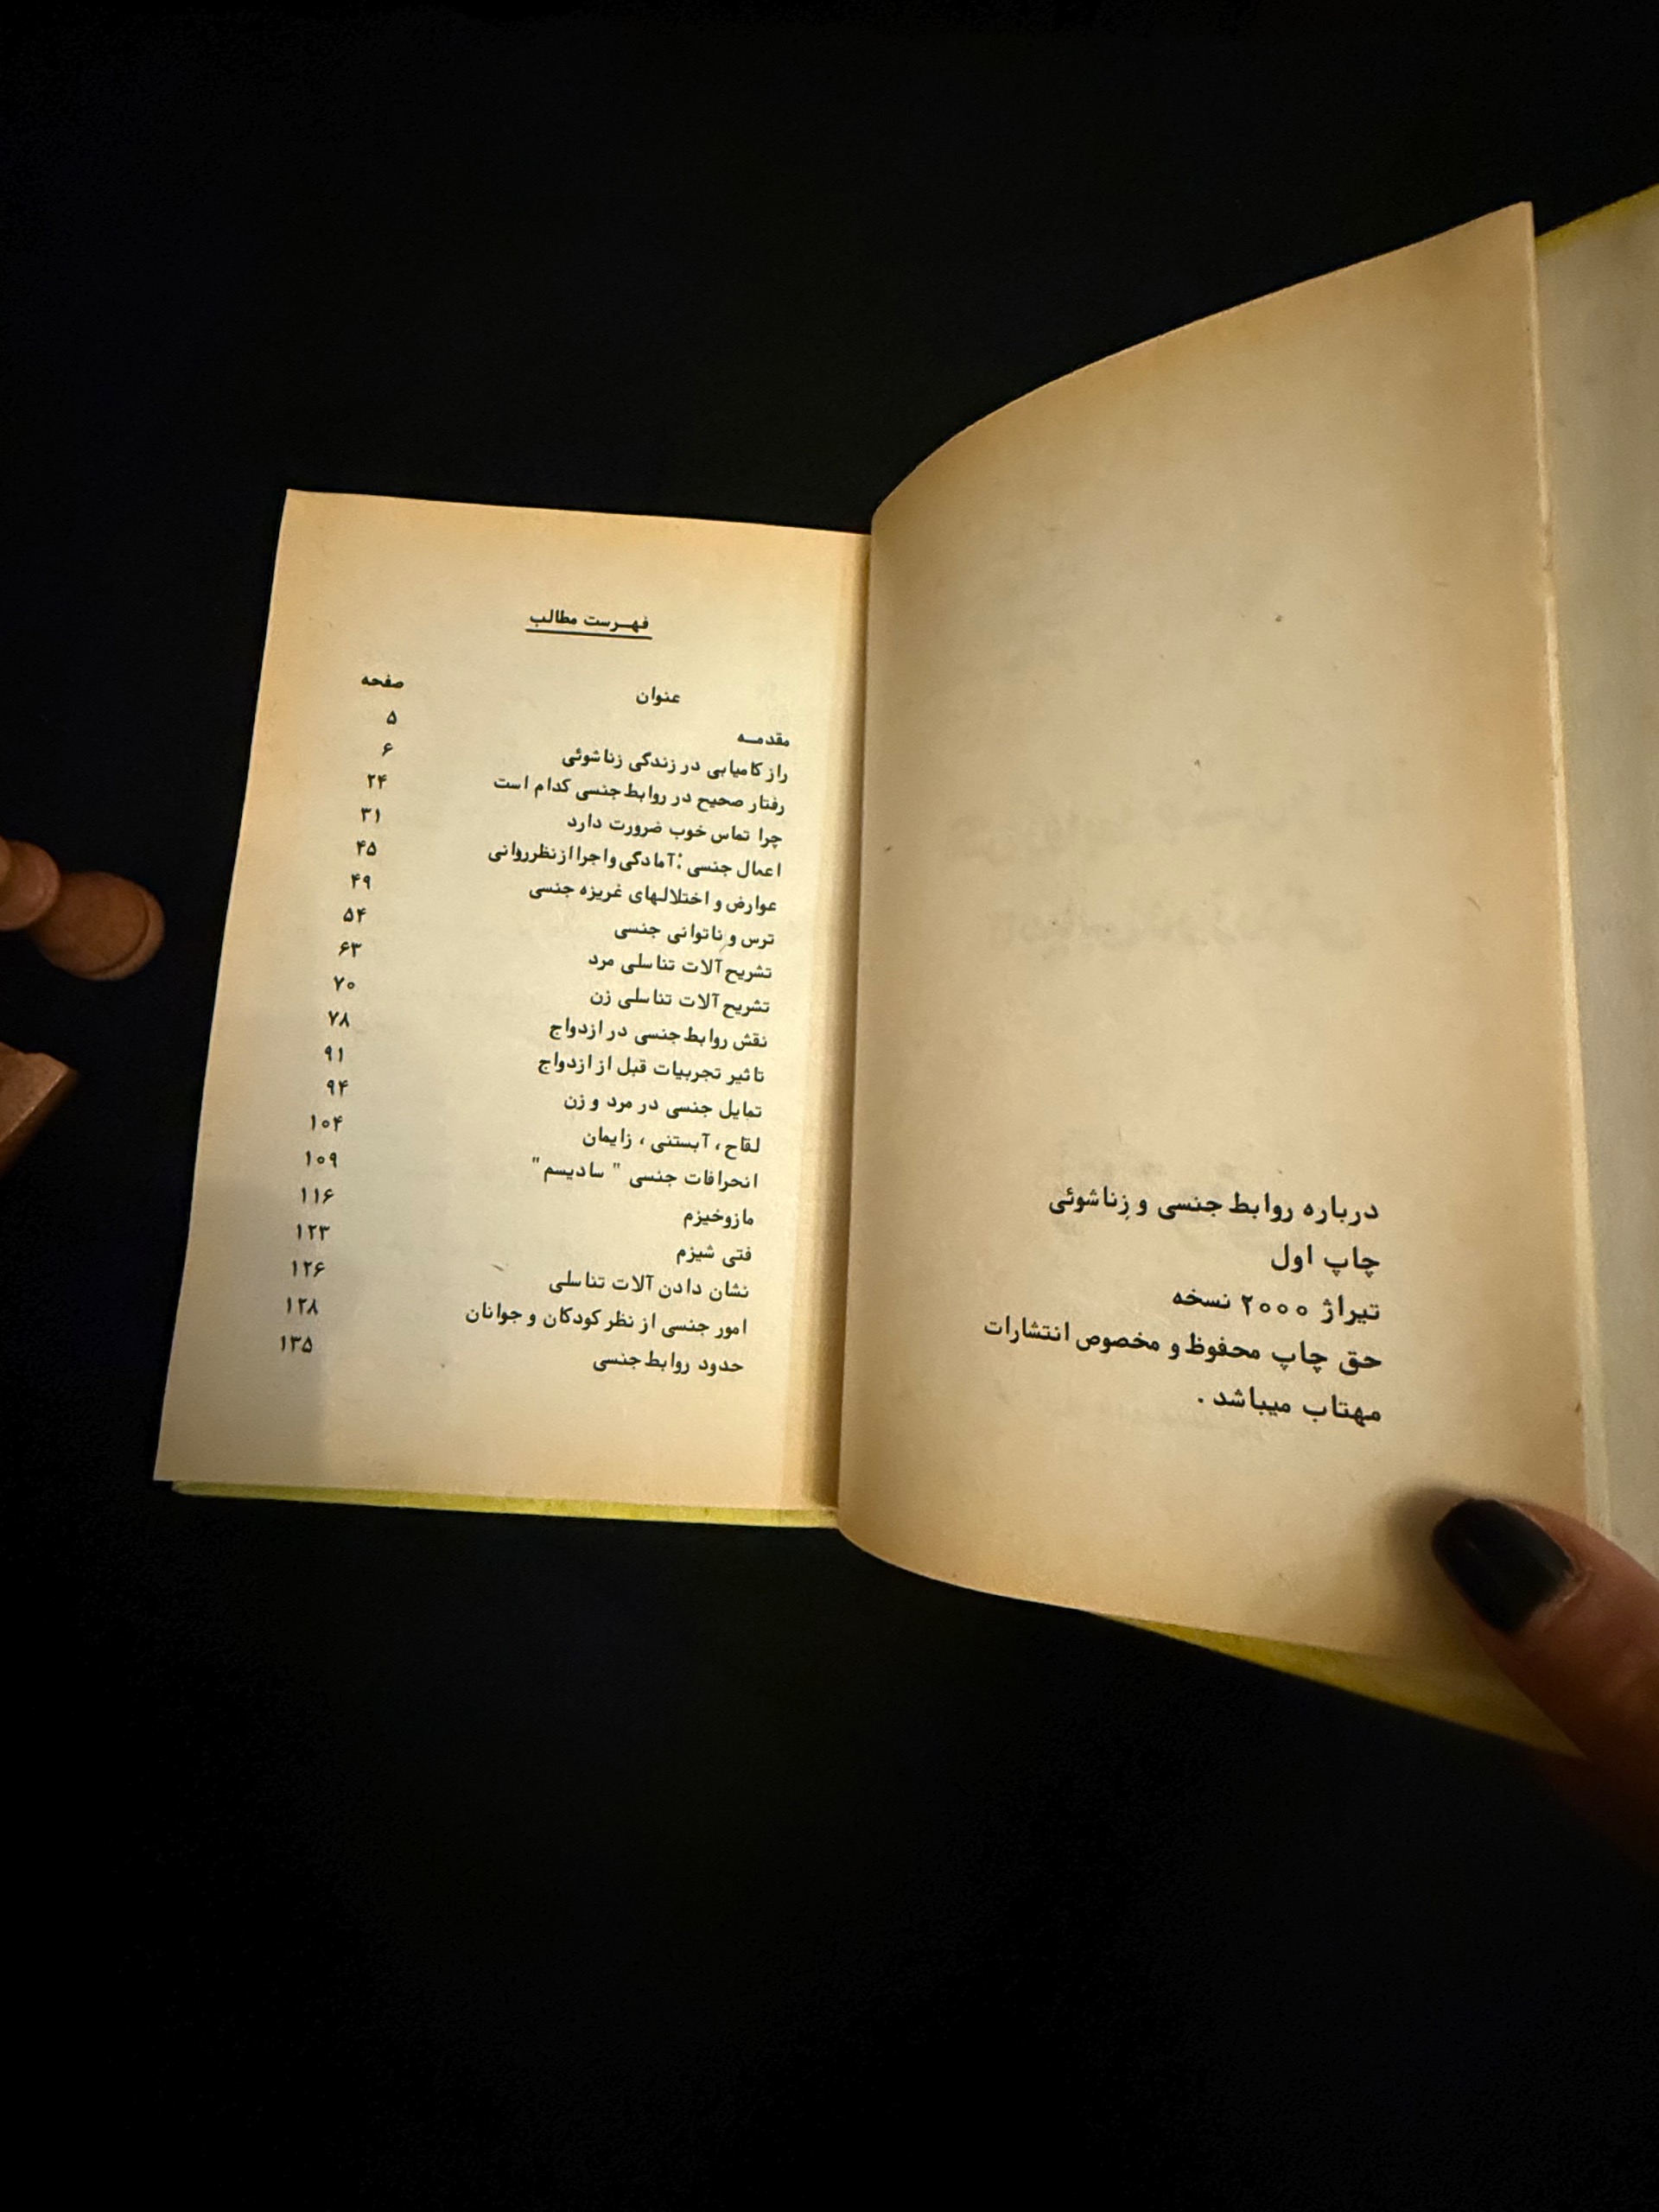 درباره روابط جنسی و زناشوئی
چاپ اول
تیراژ ۲۰۰۰ نسخه
حق چاپ محفوظ و مخصوص انتشارات
مهتاب میباشد .
فهـرست مطالب
عنوان صفحه
مقدمـه ۵
راز کامیابی در زندگی زناشوئی ۶
رفتار صحیح در روابط جنسی کدام است ۲۴
چرا تماس خوب ضرورت دارد ۳۱
اعمال جنسی : آمادگی و اجرا از نظر روانی ۴۵
عوارض و اختلالهای غریزه جنسی ۴۹
ترس و ناتوانی جنسی ۵۴
تشریح آلات تناسلی مرد ۶۳
تشریح آلات تناسلی زن ۷۰
نقش روابط جنسی در ازدواج ۷۸
تاثیر تجربیات قبل از ازدواج ۹۱
تمایل جنسی در مرد و زن ۹۴
لقاح ، آبستنی ، زایمان ۱۰۴
انحرافات جنسی " سادیسم " ۱۰۹
مازوخیزم ۱۱۶
فتی شیزم ۱۲۳
نشان دادن آلات تناسلی ۱۲۶
امور جنسی از نظر کودکان و جوانان ۱۲۸
حدود روابط جنسی ۱۳۵